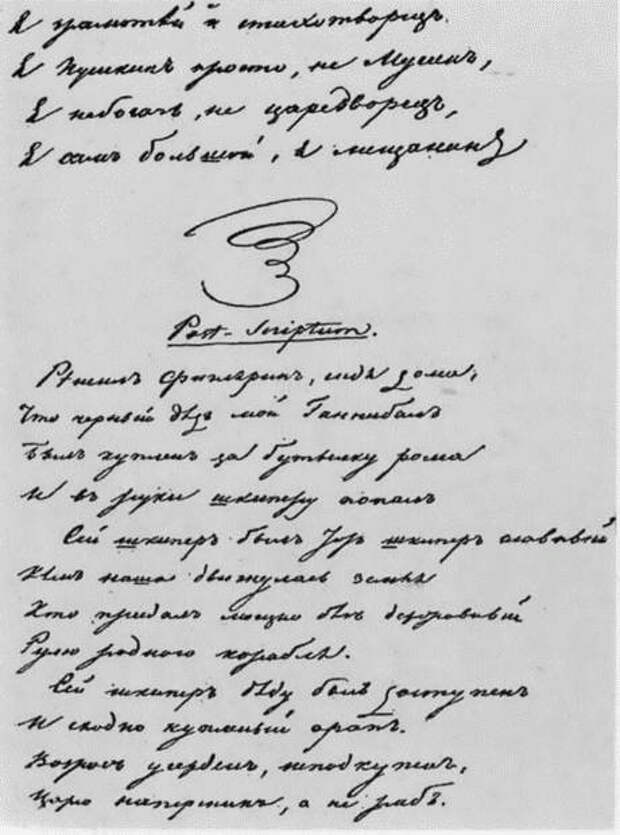 Я грамотей и стихотворецъ.
Я Пушкинъ просто, не Мусинъ,
Я небогачъ, не царедворецъ,
Я самъ большой, я мещанинъ
Post-Scriptum.
Решилъ Фигляринъ, сидя дома,
Что черный дѣдъ мой Ганнибалъ
Былъ купленъ за бутылку рома
И въ руки шкиперу попалъ
Сей шкиперъ былъ тотъ шкиперъ славный
Кемъ наша двигнулась земля
Кто придалъ мощно бѣгъ державный
Рулю родного корабля.
Сей шкиперъ дѣду былъ доступенъ
И сходно купленный арапъ.
Возросъ усерденъ, неподкупенъ,
Царю наперсникъ, а не рабъ.